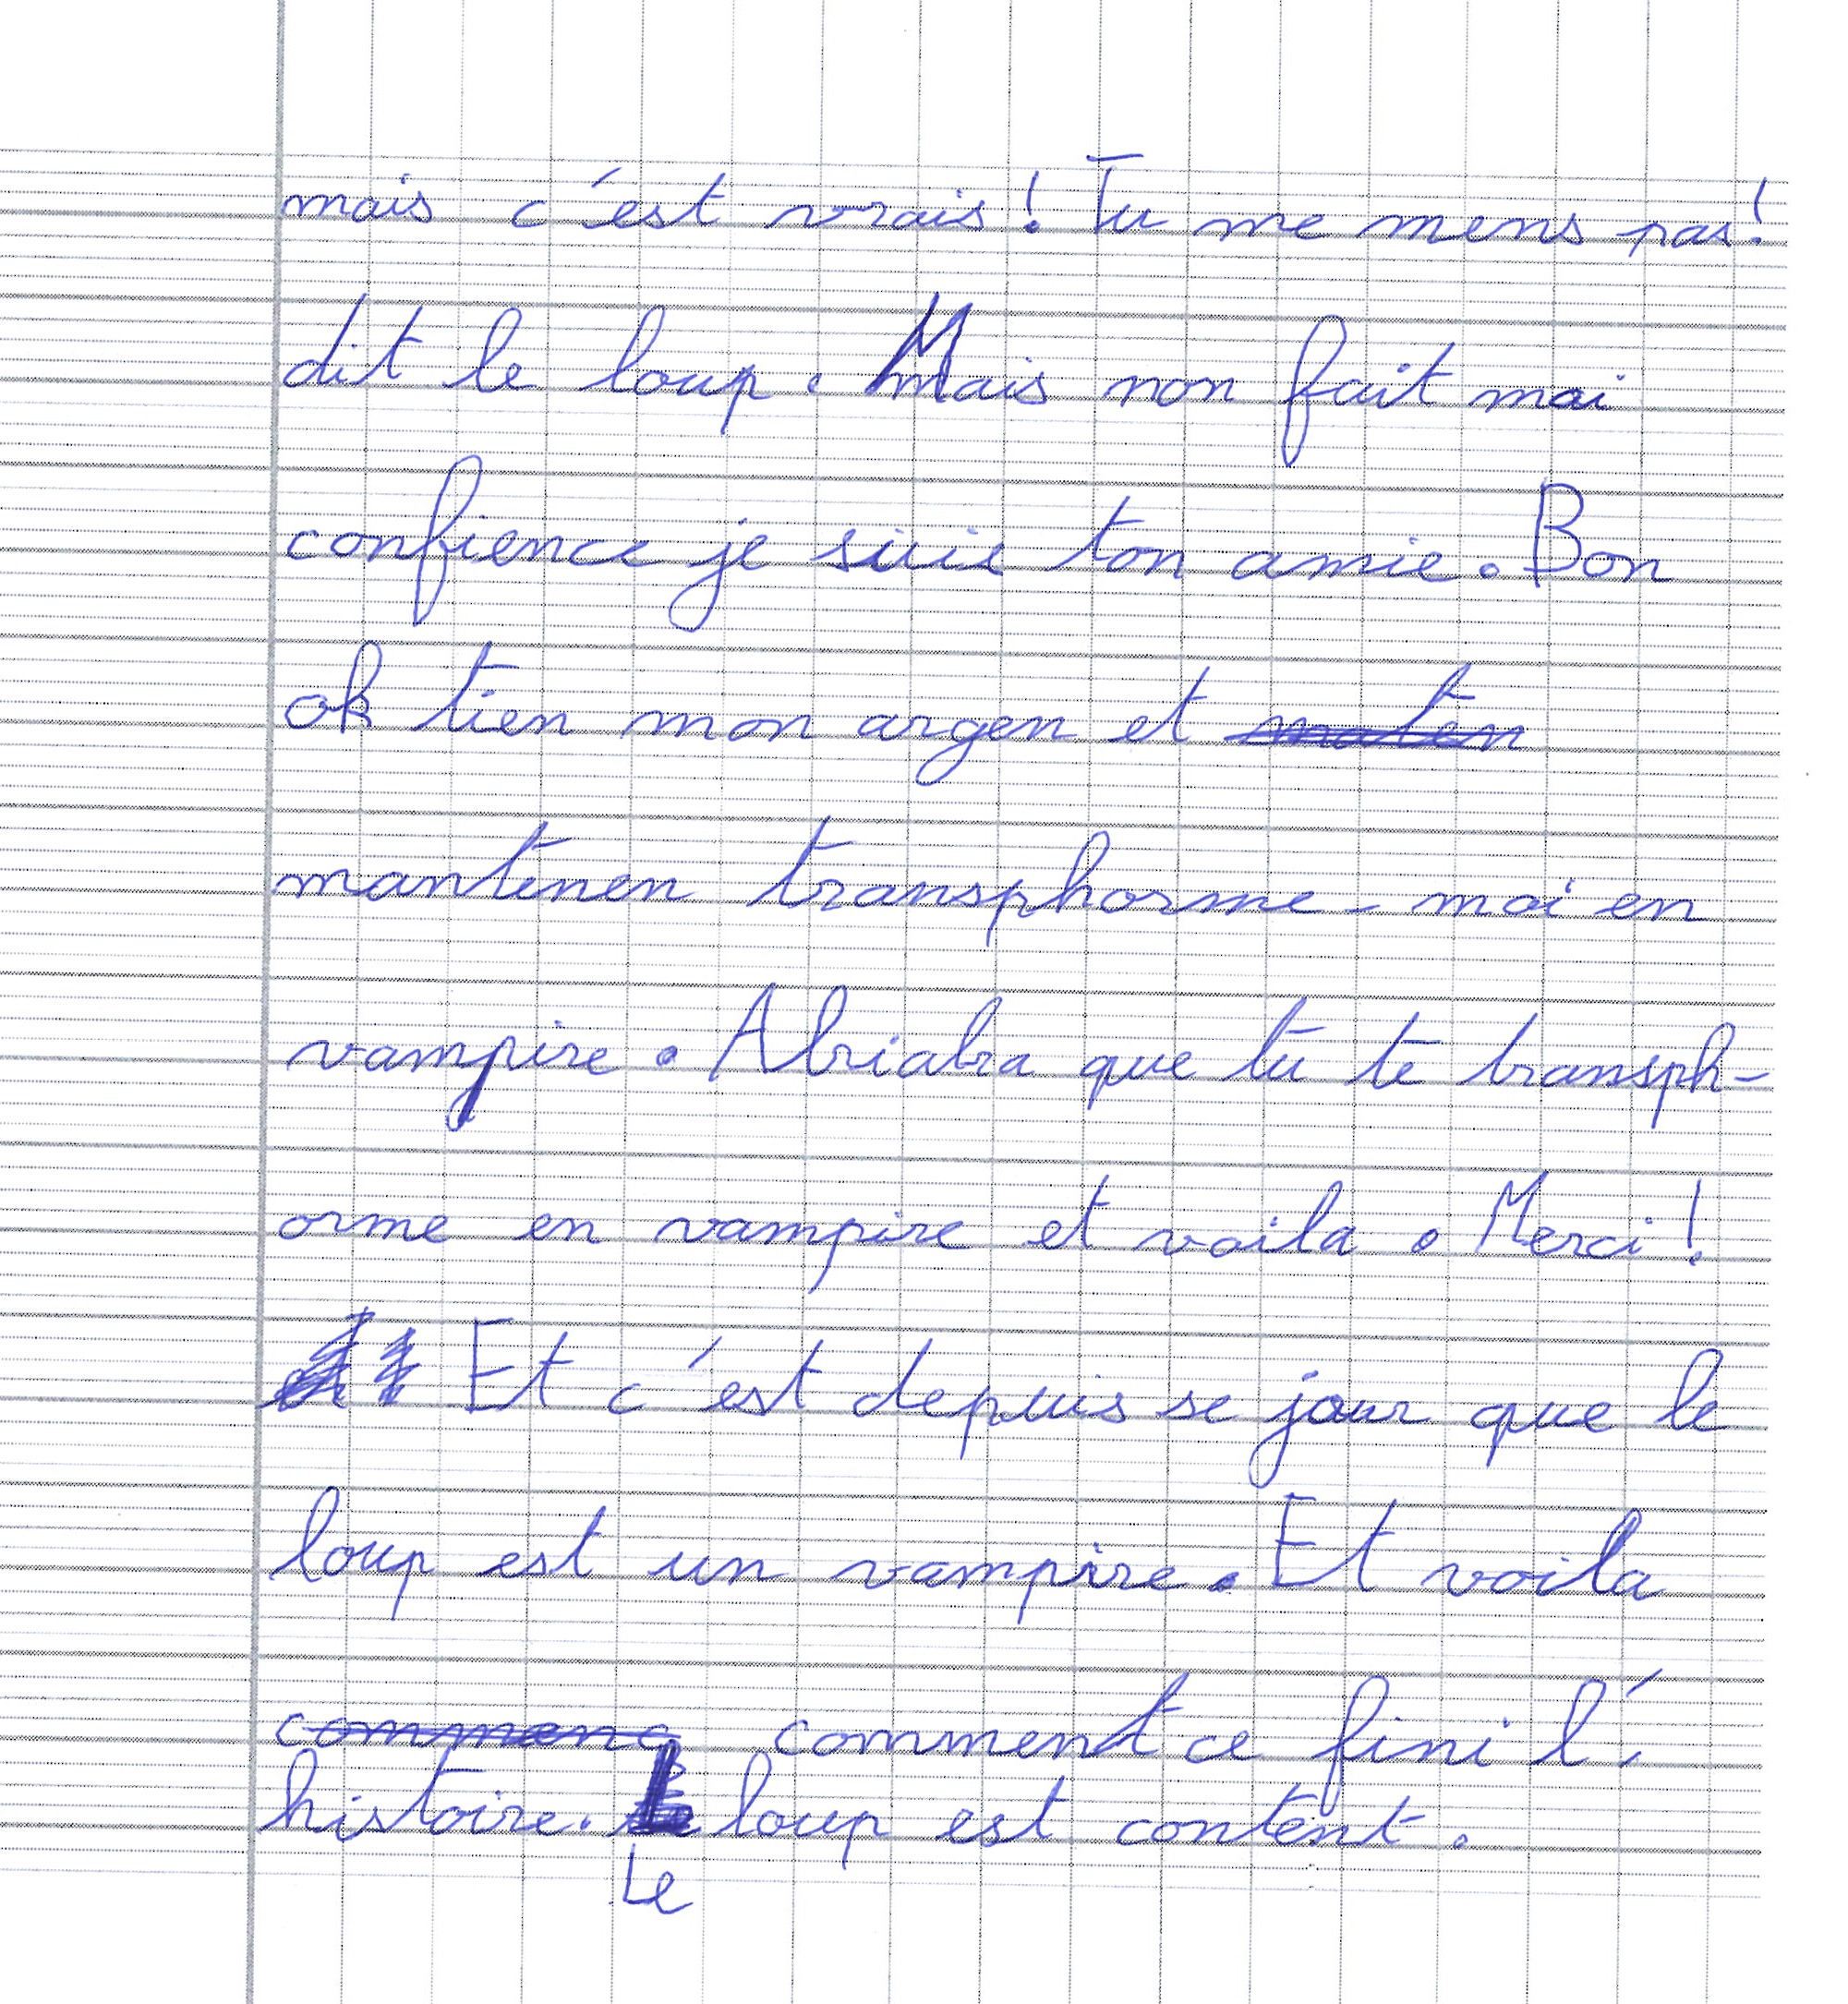 mais c'est vrais ! Tu me mens pas !
dit le loup. Mais non fait moi
confience je suis ton amie. Bon
ok tien mon argen et maten
mantenen transphorme-moi en
vampire. Abriabra que tu te transph-
orme en vampire et voila. Merci !
Et c'est depuis se jour que le
loup est un vampire. Et voila
commenc comment ce fini l'
histoire. loup est content.
Le